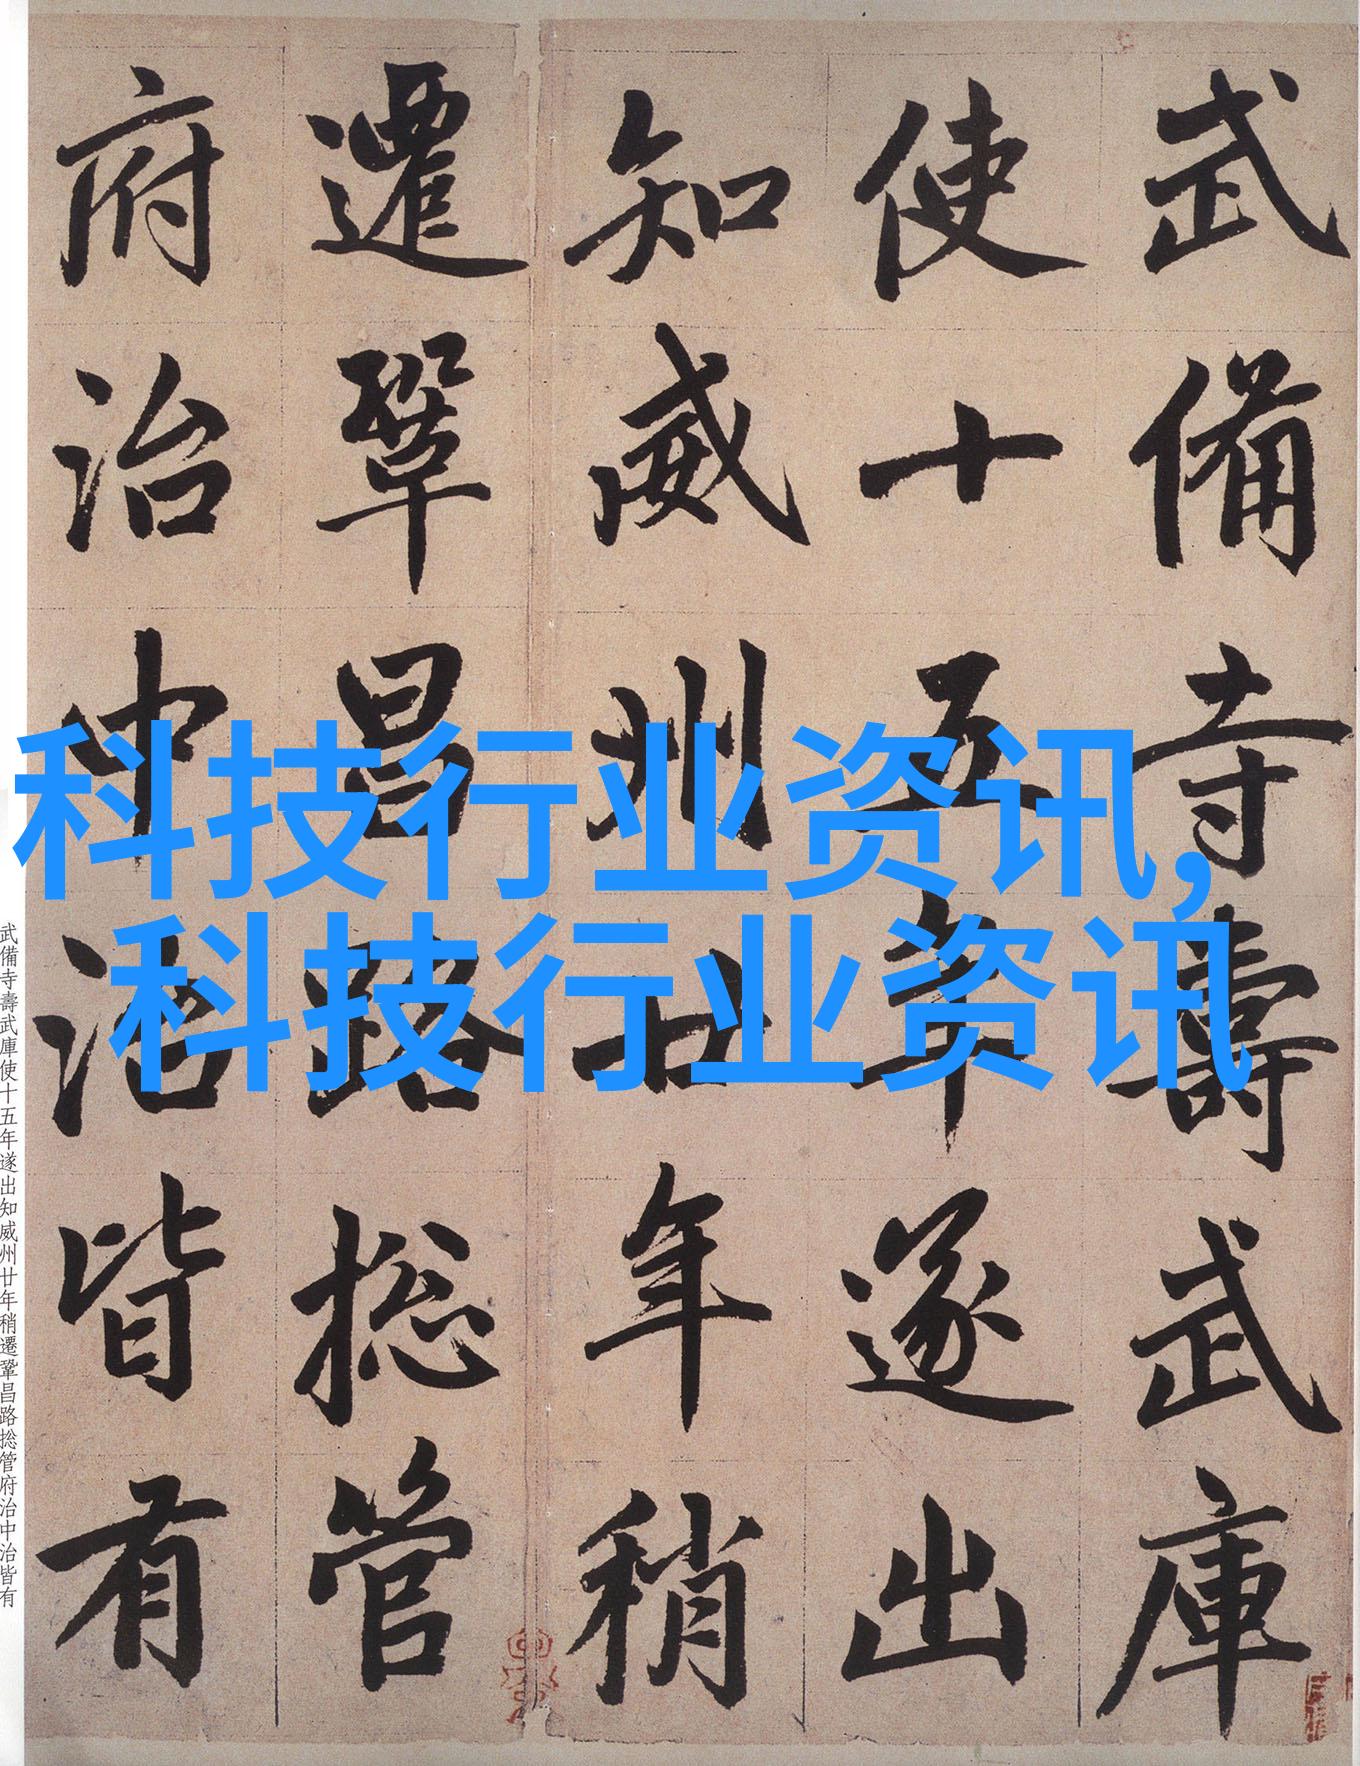 武備寺壽武庫
使十五年遂出
知威州廿年稍
遷鞏昌路捴管
府治中治皆有
科技行业资讯,
科技行业资讯
武備寺壽武庫使十五年遂出知威州廿年稍遷鞏昌路捴管府治中治皆有